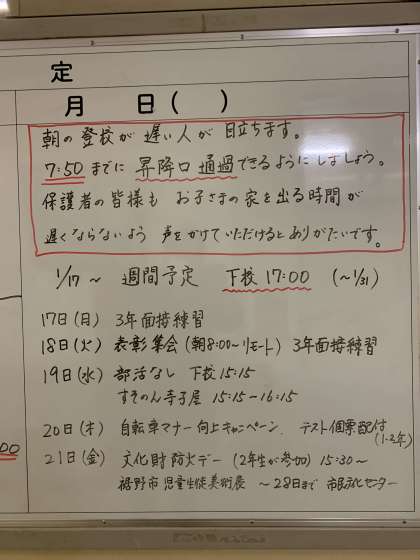 定
月 日( )
朝の登校が遅い人が目立ちます。
7:50までに昇降口通過できるようにしましょう。
保護者の皆様も お子さまの家を出る時間が
遅くならないよう 声をかけていただけるとありがたいです。
1/17〜 週間予定 下校17:00 (〜1/31)
17日(月) 3年面接練習
18日(火) 表彰集会(朝8:00〜リモート) 3年面接練習
19日(水) 部活なし 下校15:15
すそのん寺子屋 15:15-16:15
20日(木) 自転車マナー向上キャンペーン、テスト個票配付
(1・2年)
21日(金) 文化財防火デー(2年生が参加) 15:30〜
裾野市児童生徒美術展 〜28日まで 市民文化センター